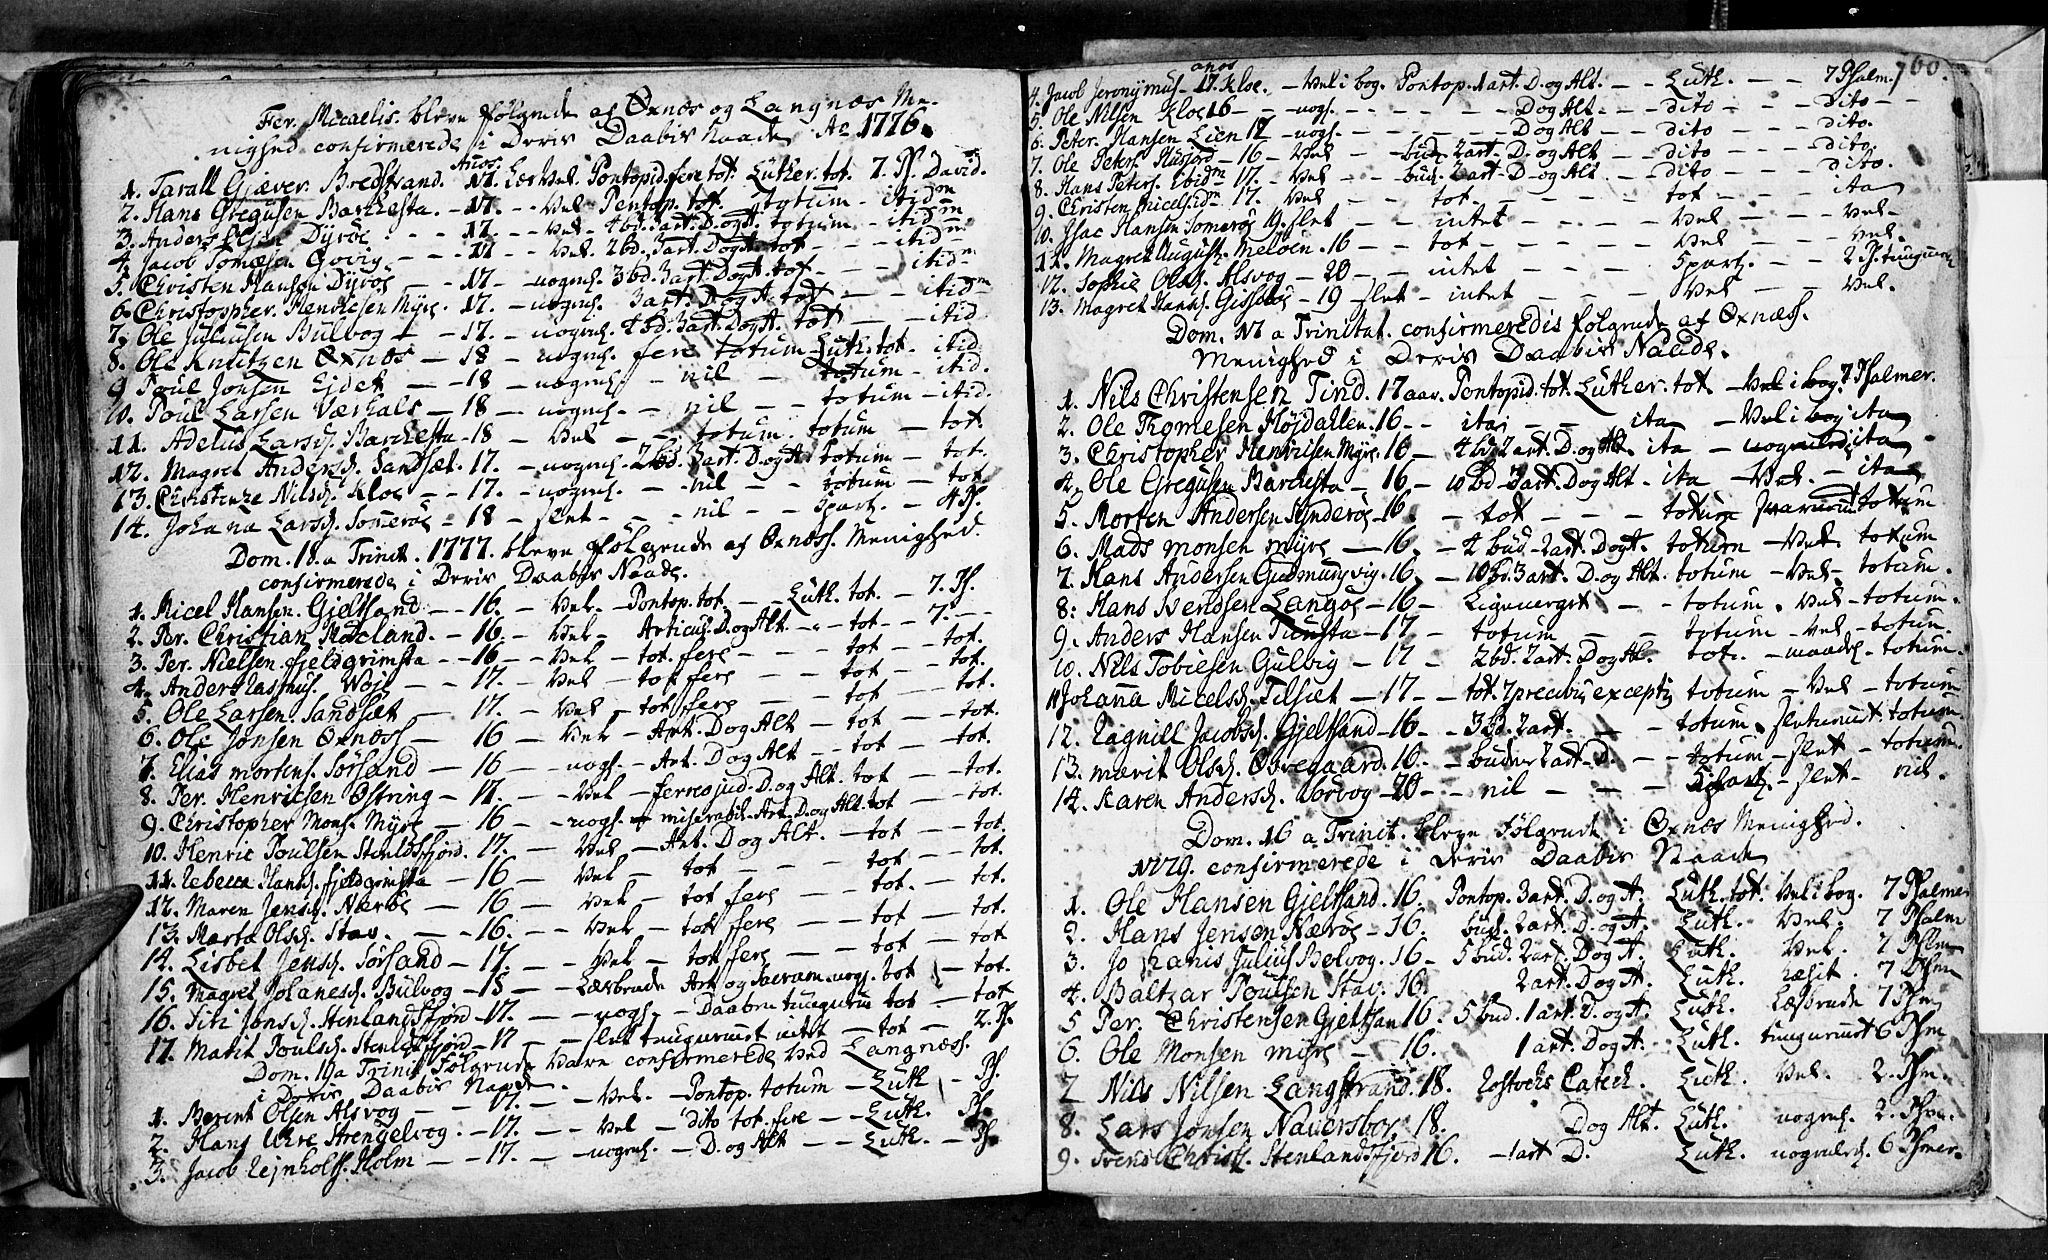 Fer. Micaelis. bleve følgende af Øxnæs og Langnæs Me-
nighed confirmerede i Deris Daabis Naade Ao 1776.
Anos.
1. Tarall Gjæver. Bredstrand. 17. Læs Vel. Pontopid. fere tot. Luther. tot. 7. Ps. David.
2. Hans Gregusen Barchesta. - 17. - - Vel Pontop. tot. totum - itidm
3. Anders Olsen Dyrøe. - - - 17. - - Vel - 4 bd. 3 art. D. og A. totum - itidm
4. Jacob Tomæsen Govig - - - 17 - - Vel. 2 bd. 3 art. D og A tot - - - itidm
5. Christen Hansen Dyrøe - - 17 - nogenl. 3 bd. 3 art. D og A tot - - - itidm
6. Christopher. Henricsen Myre. 17. - nogenl. 3 art. D. og A. tot - - itidm
7. Ole Juliusen Bulvog - 17. - nogenl. 4 bd. 3 art. D og A. tot - - itid
8. Ole Knutzen Øxnæs - 18 - nogenl. fere totum Luth. tot. itid.
9 Poul Jonsen Eidet - - 18 - nogenl. - nil - totum - itid.
10. Poul Larsen Værhals - 18 - nogenl. - nil - - totum - itid.
11. Adelus Larsd. Barchesta - 18 - Vel - - totum. totum - tot.
12. Magret Andersd. Sandsæt. 17. - nogenl. 2 bd. 3 art. D. og A totum - tot.
13. Christenze Nilsd. Kloe - - 17. - nogenl. - nil - - totum - tot
14. Johana Larsd. Somerøe - 18 - slet - - - nil - - 3 part. - 4 Ps.
Dom. 18. a Trinit. 1777. bleve følgende af Øxnæss. Menighed.
confirmerede i Deris Daabis Naade.
1. Micel Hansen. Gjeltsand - - 16. - Vel. - Pontop. tot. - - Luth. tot. - 7. Ps.
2. Per. Christian Rødeland. - 16. - Vel - Articul. D. og Alt. - - tot - - 7. - -
3. Per. Nielsen fjeldgrimsta - - 16 - - Vel - tot. fere - - - tot - - tot.
4. Anders Rasmus. Woje - - 17. - Vel - tot fere - - - tot - - tot.
5. Ole Larsen. Sandsæt - 17. - Vel - tot fere - - - tot - - tot.
6. Ole Jonsen Øxnæss - 16 - Vel - Art. D og Alt - tot - - tot.
7. Elias mortens. Sørsand - 16 - - nogl. - Art. D og Alt - - tot - - tot.
8. Per. Henricsen Østring - 17. - - Vel - D. og Alt. tot - - tot.
9. Christopher Mons. Myre - 16 - - nogl. - miserabil. Art. D. og Alt. tot - - tot.
10. Henric Poulsen Stenlandsfjord. 17. - Vel - Art. D og Alt. - tot - - tot.
11. Rebecca Hansd. fjeldgrimsta - 16 - Vel - tot - - - tot - tot.
12. Maren Jensd. Nærøe - 16 - Vel - tot fere - tot. - tot.
13. Marta Olsd. Stav. - - 16. - - Vel - tot fere - - tot - - tot.
14. Lisbet Jensd. Sørsand - 17. - - Vel - tot fere - - tot - tot
15. Magret Johanesd. Bulvog - 18 - - Læsende Art og Sacram. nogl. tot - tot.
16. Siri Jonsd. Stenlandsfjord - 17. - - nogl. - Daaben tot - tot
17. Marit Poulsd. Stenlandsfjord - 17 - - slet intet - tot - 2. Ps.
Dom. 19 a Trinit følgende bleve confirmerede ved Langnæss.
i Deris Daabis Naade.
1. Berint Olsen Alsvog - - 17. - - Vel. - Pontop. totum - Luth - Ps.
2. Hans Uhre Strengelvog. - 17. - - Vel - dito tot. fere - - Luth. - Ps.
3. Jacob Rejnholts. Holm - - 17. - - nogenl. - D. og Alt - - Luth. - Ps.
760.
anos
4. Jacob Jeronymus - 17. Kloe. - Vel i bog. Pontop. 1 art. D. og Alt. - - Luth. - - 7 Psalm.
5. Ole Nilsen Kloe 16 - nogl. - - - - D og Alt - - dito - - dito - -
6. Peter. Hansen Lien 17 - nogl. - - - - D og Alt - - dito - - dito.
7. Ole Peters Husjord - 16 - Vel - - bud. 2 art. D. og Alt - - dito - - dito.
8. Hans Peters. Ibidm 17. - Vel - - bud. 2 art. D. og Alt - - dito - - dito.
9. Christen micels. 17. Vel - - tot - - - - tot - - - ita
10. Isac Hansen Somerøe 19. slet - intet - - - Vel - - - Vel.
11. Magret August. Meløen. 16 - - tot - - - - Vel - - - Vel.
12. Sophie Olsd. Alsvog - 20 - - intet - - - 5 part. - - 2 Ps.
13. Magret Hansd. Gisløe - 19 slet - intet - - - Vel - - - Vel.
Dom. 17 a Trinitat. confirmeredis følgende af Øxnæss.
Menighed i Deris Daabis Naade.
1. Nils Christensen Tind. 17 aar. Pontopid. tot. Luther. tot - Vel i bog. 7 Psalmer.
2. Ole Thomesen Højdahlen. 16 - - ita - - ita - Vel i bog ita
3. Christopher Henricsen Myre. 16 - 4 bd 2 art. D. og Alt. ita - nogenledes ita
4. Ole Gregusen Barchesta - 16 - 10 bd - 3 art. D og Alt - ita - Vel - ita
5. Morten Andersen Synderøe - 16. - tot - - - totum totum
6. Mads monsen myre - 16. - 4 bud - 2 art. D og A. totum - Vel. totum
7. Hans Andersen Gudmundsvig. 16. - 10 bd. 3 art. D. og Alt. totum - Vel - totum.
8. Hans Iverssen Langøe - 16 - Ligeverget - - totum. Vel - totum.
9. Anders Hansen Tunsta - 17 - totum - - totum - Vel - totum.
10. Nils Tobiesen Gulvig - 17 - 2 bd. 2 art. D og Al. tot. - maadel - totum.
11. Johanna Micelsd. Tilsæt - 17 - - tot. 7 precibus exceptis totum - Vel - totum
12. Ragnill Jacobsd. Gjeltsand - 16 - - 3 B. 2 art. - - totum. totum.
13. marit Olsd. Øvregaard. 16. - buden 2 art - D. - - totum - slet - totum.
14. Karen Andersd. Vorvog - 20 - - nil - - - 5 part. - slet - nil.
Dom. 16 a Trinit. bleve følgende i Øxnæs Menighed.
1779. confirmerede i Deris Daabis Naade
1. Ole Hansen Gjeltsand. 16. Pontop. 3 art. D. og A. Luth. tot. Vel i bog. 7 Psalmer
2. Hans Jensen Nærøe - 16. bud. 2 art. D. og A. Luth. Vel. 7 Psalm
3. Johanis Julius Belvog. 16 - 5 bud. 2 art. D og A. Luth. Vel. 7 Pslm
4. Baltzar Poulsen Stav. 16. 2 art. D og A. Luth. 7 Pslm
5 Per. Christensen Gjeltsan 16. 5 bud. 1 art. D. og A. Luth. Læsende 7 Pslm
6. Ole Monsen myre - 16. 1 art. D og A. Luth. 6 Pslm
7 Nils Nilsen Langstrand. 18. Rostochs Catech. Luth. Vel. 2. Pslm.
8. Lars Jonsen Naversbor. 18. D og Alt. Luth. nogenl. 2. Pslm.
9. Trens Christ. Stenlandsfjord 16. - 1 art D. Luth. nogenled. 6 Psmer.